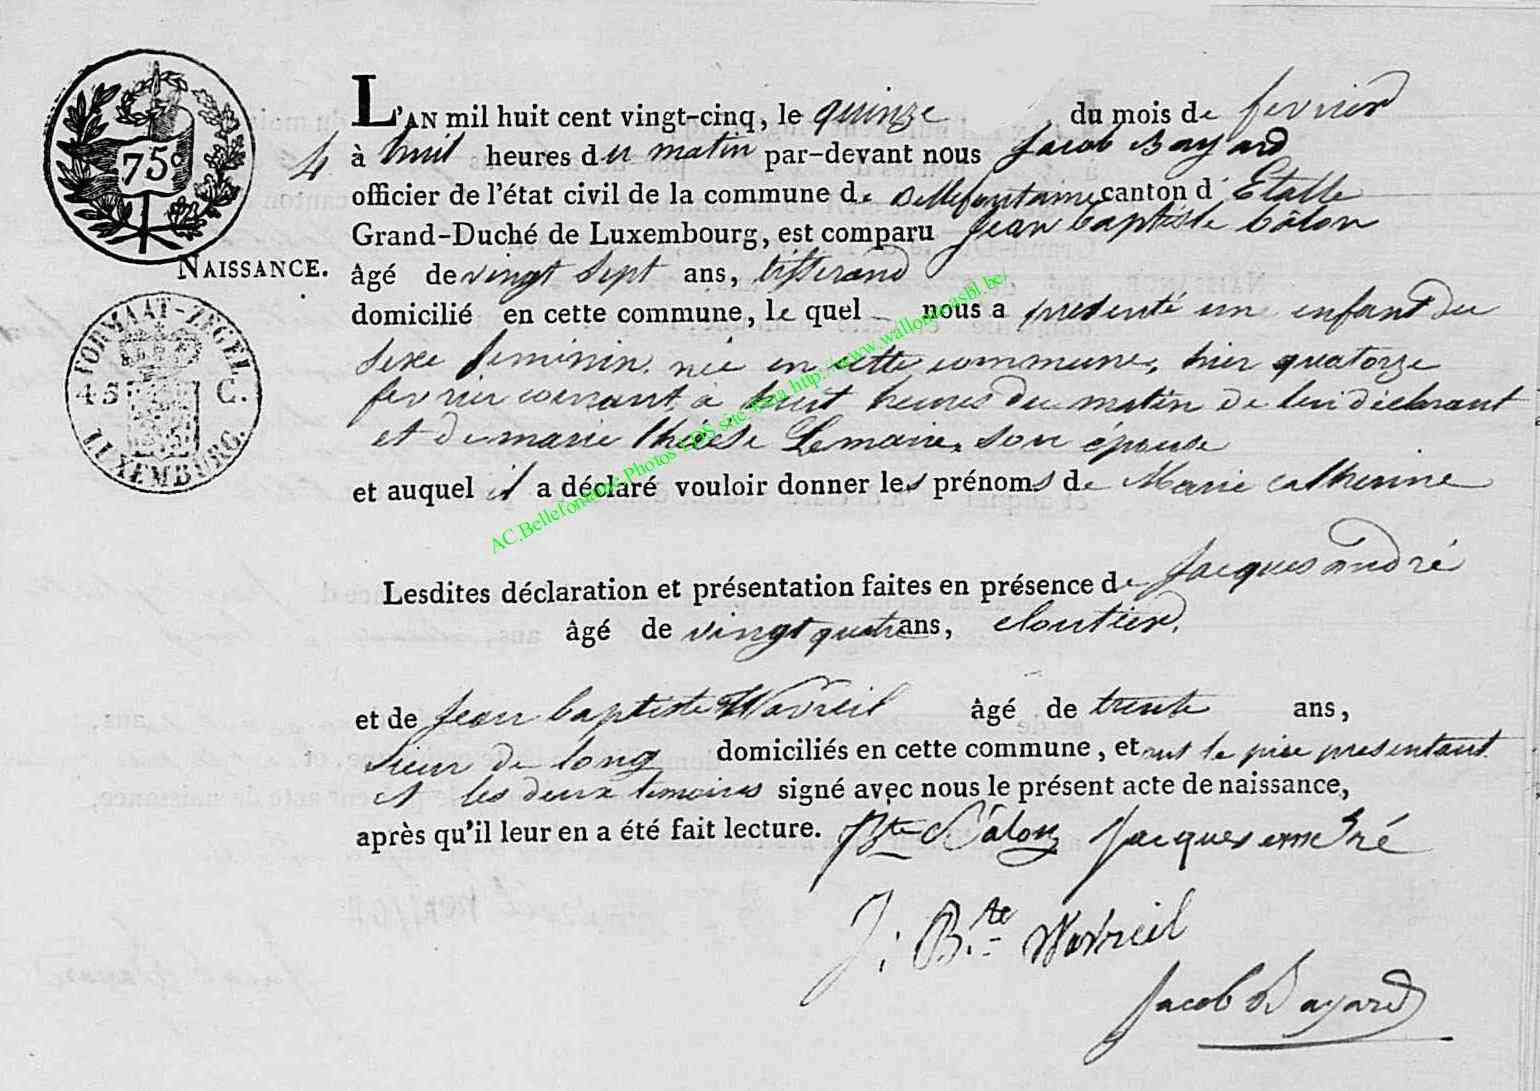 75c
L'AN mil huit cent vingt-cinq, le quinze du mois de fevrier
4 à huit heures du matin par-devant nous Jacob Bayard
officier de l'état civil de la commune de Bellefontaine canton d'Etalle
Grand-Duché de Luxembourg, est comparu Jean baptiste Câlon
NAISSANCE.
âgé de vingt sept ans, tisserand
domicilié en cette commune, le quel nous a presenté un enfant du
sexe feminin, née en cette commune, hier quatorze
fevrier courant, à huit heures du matin de lui déclarant
et de marie thérèse Lemaire, son épouse
et auquel il a déclaré vouloir donner les prénoms de Marie catherine
FORMAAT-ZEGEL
45 C.
LUXEMBURG.
AC.Bellefontaine Photos CDS site data http://www.wallonia-asbl.be/
Lesdites déclaration et présentation faites en présence de Jacques andré
âgé de vingt quatre ans, cloutier,
et de Jean baptiste Wavreil âgé de trente ans,
sieur de long domiciliés en cette commune, et ont le père presentant
et les deux temoins signé avec nous le présent acte de naissance,
après qu'il leur en a été fait lecture. JBte Câlon Jacques andré
J: B.te Wavreil
Jacob Bayard